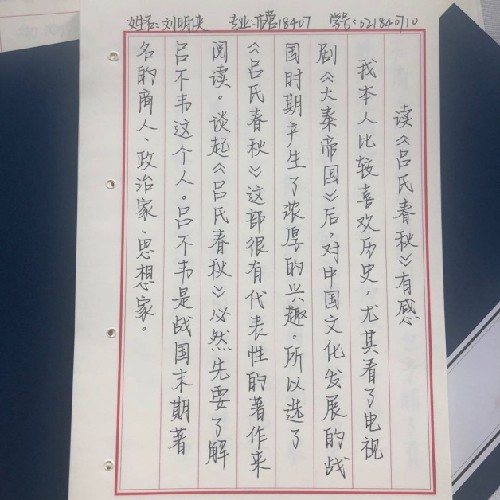 姓名:刘 专业:市营18407 学号:
读《吕氏春秋》有感
我本人比较喜欢历史,尤其看了电视
剧《大秦帝国》后,对中国文化发展的战
国时期产生了浓厚的兴趣,所以选了
《吕氏春秋》这部很有代表性的著作来
阅读。谈起《吕氏春秋》必然先要了解
吕不韦这个人。吕不韦是战国末期著
名的商人、政治家、思想家。